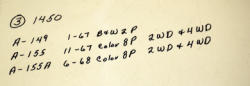 ③ 1450
A-149 1-67 B&W 2P
A-155 11-67 Color 8P 2WD & 4WD
A-155A 6-68 Color 8P 2WD & 4WD